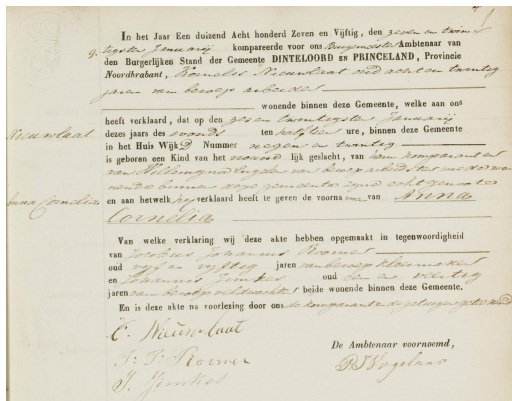 In het Jaar Een duizend Acht honderd Zeven en Vijftig, den zeven en twin
9. tigsten Januarij kompareerde voor ons Burgemeester Ambtenaar van
den Burgerlijken Stand der Gemeente DINTELOORD EN PRINCELAND, Provincie
Noordbrabant, Kornelis Nieuwlaat oud acht en twintig
jaren van beroep arbeider
wonende binnen deze Gemeente, welke aan ons
heeft verklaard, dat op den zeven twintigsten Januarij
Nieuwlaat
dezes jaars des avonds ten half tien ure, binnen deze Gemeente
in het Huis Wijk D Nummer negen en twintig
is geboren een Kind van het vrouwelijk geslacht, van hem komparant en
van beroep arbeidster mede wo
Anna Cornelia
nende binnen deze gemeente zijnde echtgenooten
en aan hetwelk hij verklaard heeft te geven de voornamen van Anna
Cornelia
Van welke verklaring wij deze akte hebben opgemaakt in tegenwoordigheid
van Jacobus Johannes Roomer
oud vijf en vijftig jaren van beroep kleermaker
en Johannis Jimkes oud en veertig
jaren van beroep veldwachter beide wonende binnen deze Gemeente.
En is deze akte na voorlezing door ons de komparant en de getuigen geteekend
C. Nieuwlaat
J. J. Roomer
J. Jimkes
De Ambtenaar voornoemd,
P J Vogelaar